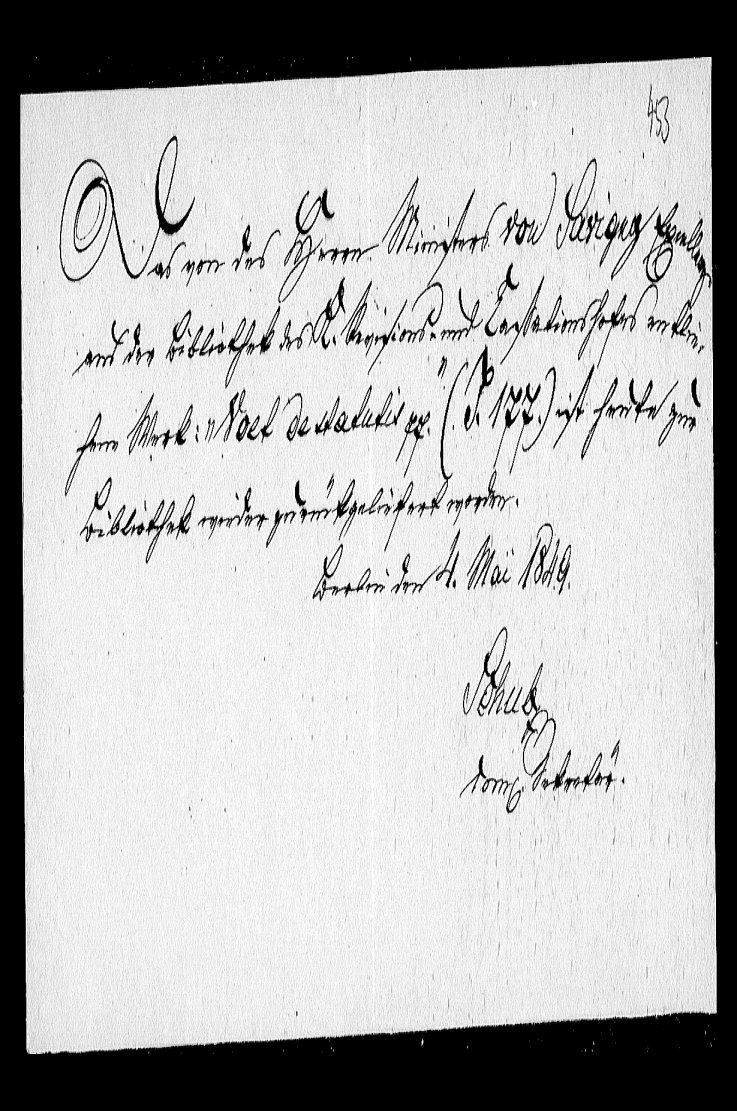 453
Das von des Herrn Ministers von Savigny Excellenz
aus der Bibliothek des K. Revisions- und Cassationshofes entlie-
hene Werk: "Voet de statutis pp." (P. 177.) ist heute zur
Bibliothek wieder zurückgeliefert worden.
Berlin den 4. Mai 1849.
Schub
Sekretär.